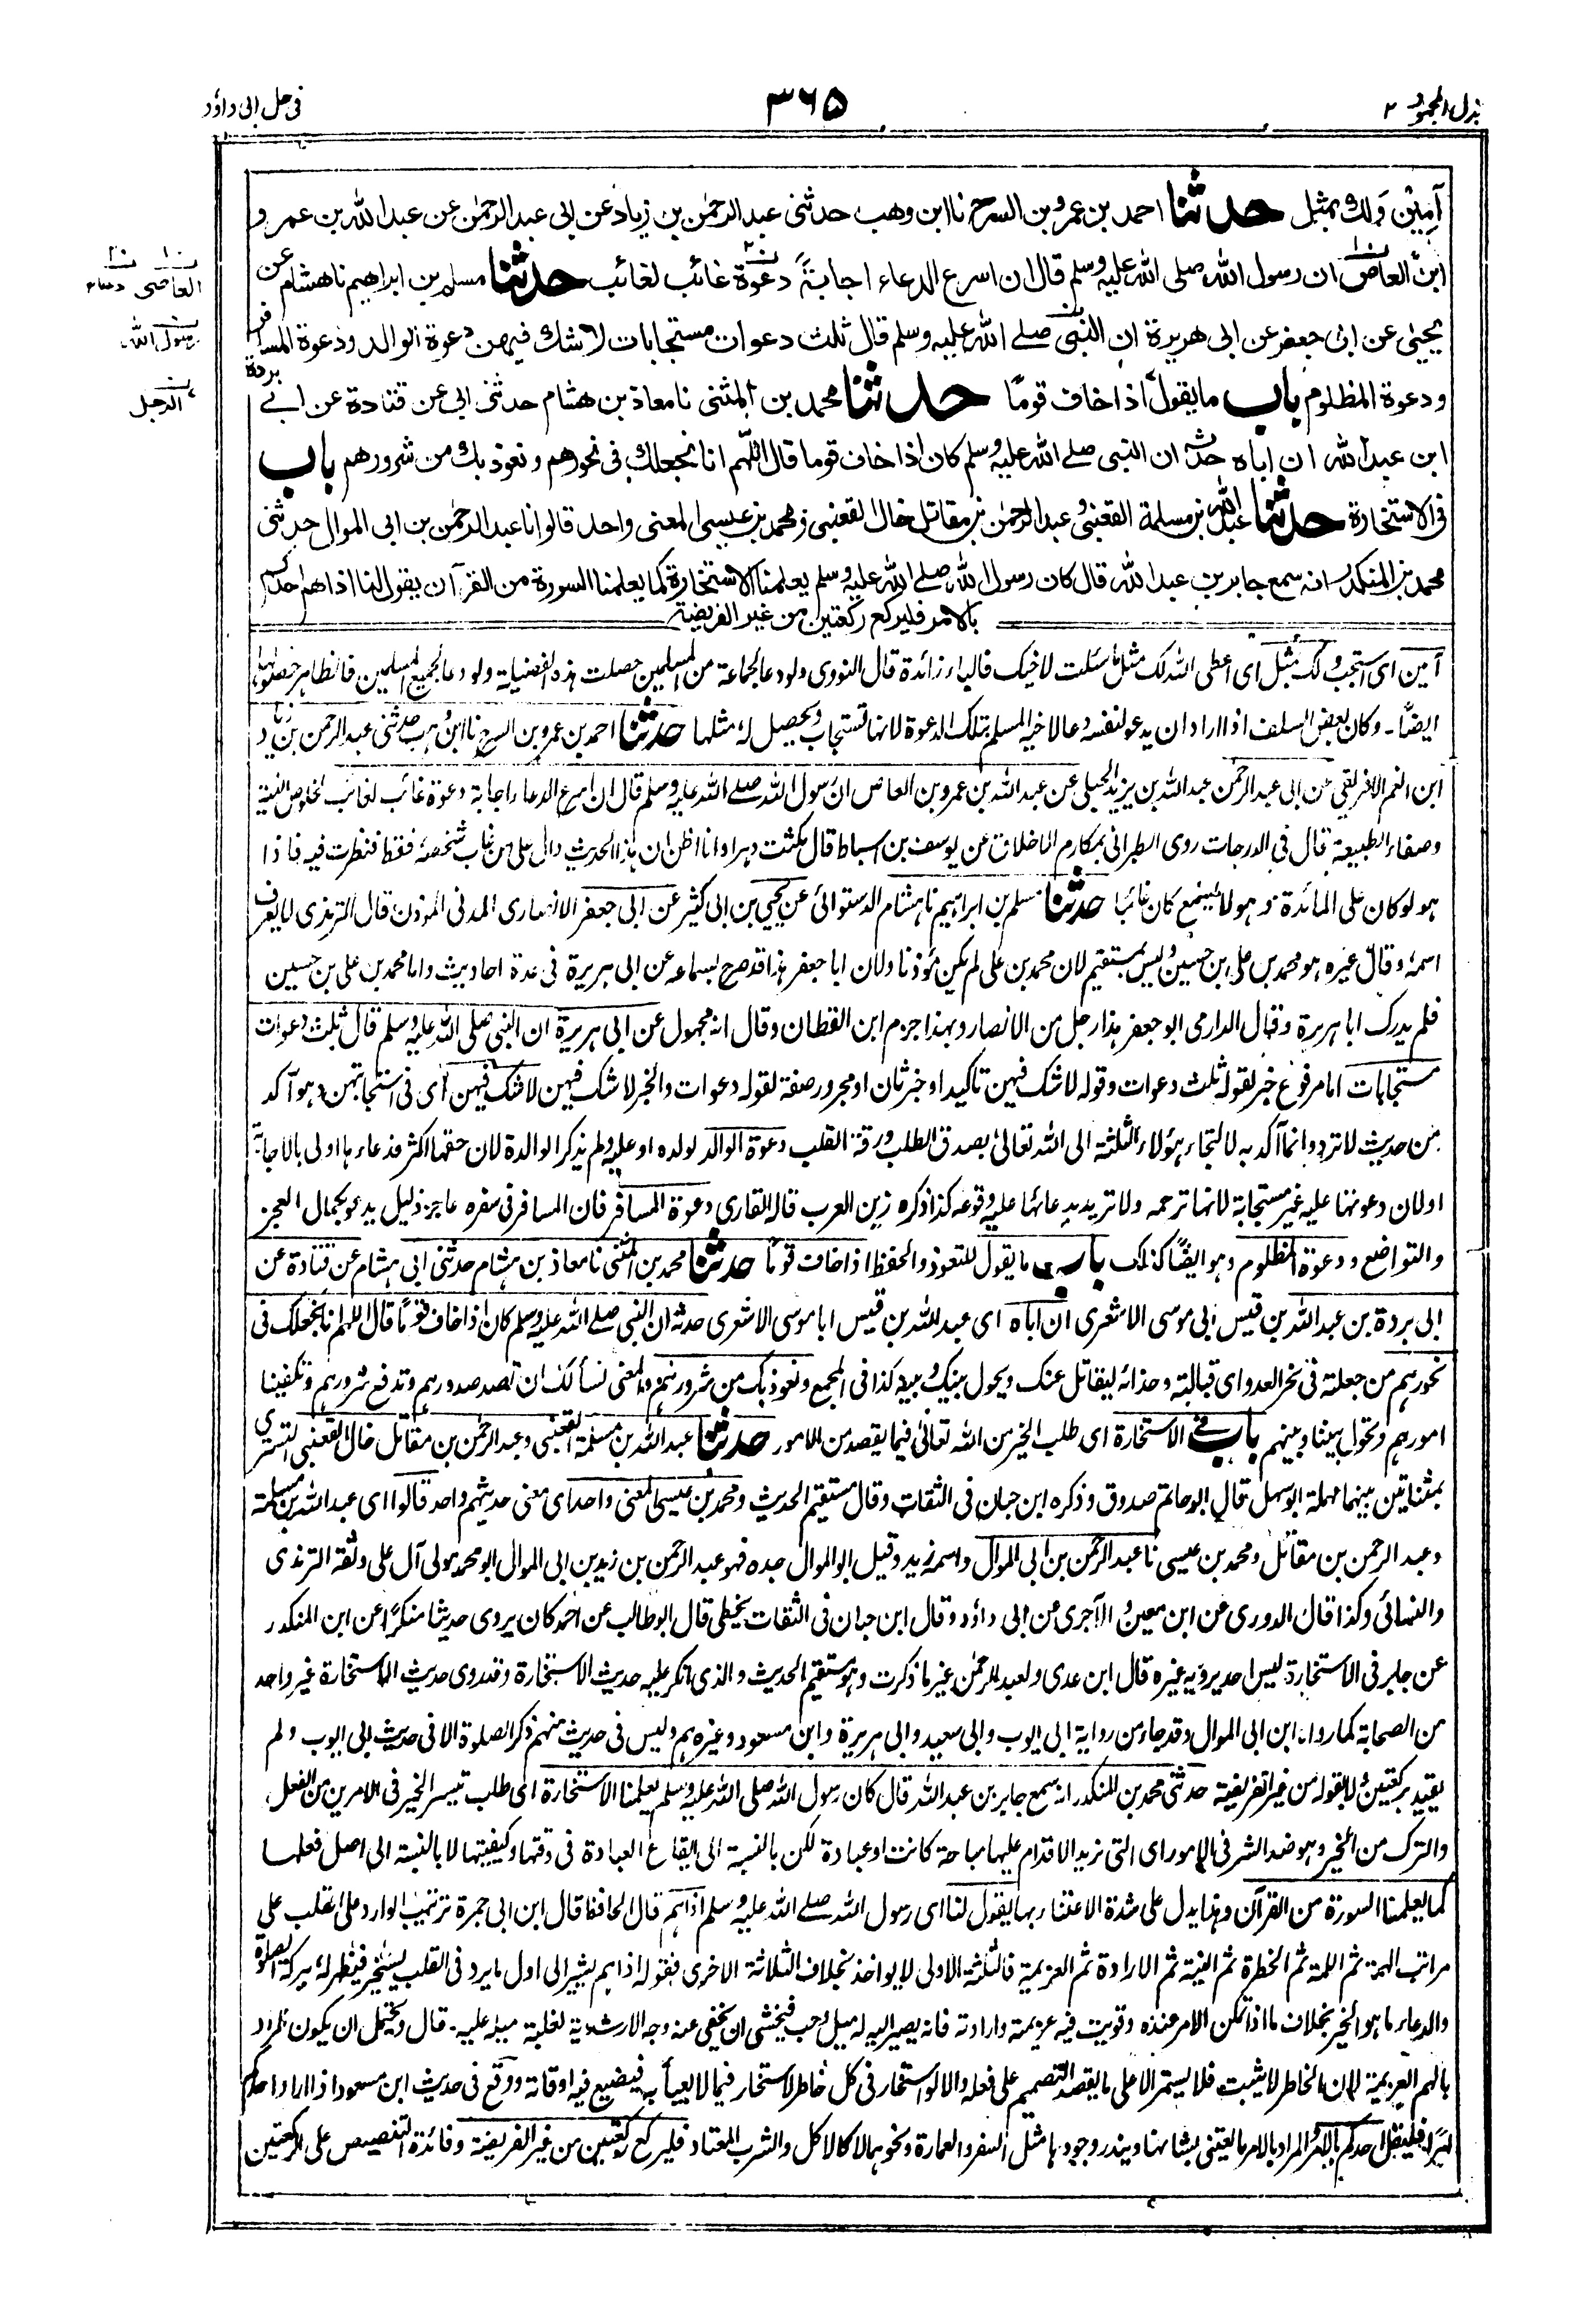 بذل المجهود ٢
٣٦٥
فی حل ابی داؤد
آمین ولک بمثل حدثنا احمد بن عمرو بن السرح نا ابن وهب حدثنی عبد الرحمٰن بن زیاد عن ابی عبد الرحمٰن عن عبد الله بن عمرو
ابن العاص ان رسول الله صلی الله علیه وسلم قال ان اسرع الدعاء اجابةً دعوة غائب لغائب حدثنا مسلم بن ابراهیم نا هشام عن
یحییٰ عن ابی جعفر عن ابی هریرة ان النبی صلے الله علیه وسلم قال ثلث دعوات مستجابات لا شك فیهن دعوة الوالد ودعوة المسافر
ودعوة المظلوم باب ما یقول اذا خاف قومًا حدثنا محمد بن المثنی نا معاذ بن هشام حدثنی ابی عن قتادة عن ابے بردة
ابن عبد الله ان اباه حدثه ان النبی صلے الله علیه وسلم كان اذا خاف قوما قال اللّٰهم انا نجعلك فی نحورهم ونعوذ بك من شرورهم باب
فی الاستخارة حدثنا عبد الله بن مسلمة القعنبی وعبد الرحمٰن بن مقاتل خال القعنبی ومحمد بن عیسی المعنی واحد قالوا نا عبد الرحمٰن بن ابی الموال حدثنی
محمد بن المنكدر انه سمع جابر بن عبد الله قال كان رسول الله صلے الله علیه وسلم یعلمنا الاستخارة كما یعلمنا السورة من القرآن یقول لنا اذا هم احدكم
بالامر فلیركع ركعتین من غیر الفریضة
العاصی دعاء
رسول الله
الرجل
آمین ای استجب ولک بمثل ای اعطی الله لک مثل ما سئلت لاخیک فالباء زائدة قال النووی ولو دعا لجماعة من المسلمین حصلت هذه الفضیلة ولو دعا لجمیع المسلمین فالظاهر حصولها
ایضًا۔ وکان بعض السلف اذا اراد ان یدعو لنفسه دعا لاخیه المسلم بتلک الدعوة لانها تستجاب ویحصل له مثلها حدثنا احمد بن عمرو بن السرح نا ابن وهب حدثنی عبد الرحمن بن زیاد
ابن انعم الافریقی عن ابی عبد الرحمٰن عبد الله بن یزید الحبلی عن عبد الله بن عمرو بن العاص ان رسول الله صلے الله علیه وسلم قال ان اسرع الدعاء اجابة دعوة غائب لغائب لخلوص النیة
وصفاء الطبیعة قال فی الدرجات روی الطبرانی بمکارم الاخلاق عن یوسف بن اسباط قال مکثت دهرا وانا اظن ان هذا الحدیث دال علی من غاب شخصه فقط فنظرت فیه فاذا
هو لو کان علی المائدة وهو لا یسمع کان غائبا حدثنا مسلم بن ابراهیم نا هشام الدستوائی عن یحیی بن ابی کثیر عن ابی جعفر الانصاری المدنی المؤذن قال الترمذی لا یعرف
اسمه وقال غیره هو محمد بن علی ابن حسین ولیس بمستقیم لان محمد بن علی لم یکن مؤذنا ولان ابا جعفر هذا قد صرح بسماعه عن ابی هریرة فی عدة احادیث واما محمد بن علی بن حسین
فلم یدرک ابا هریرة وقال الدارمی ابو جعفر هذا رجل من الانصار وبهذا جزم ابن القطان وقال انه مجهول عن ابی هریرة ان النبی صلی الله علیه وسلم قال ثلث دعوات
مستجابات اما مرفوع خبر لقوله ثلث دعوات وقوله لا شک فیهن تاکید او خبر ثان او مجرور صفة لقوله دعوات والخبر لا شک فیهن لا شک فیهن ای فی استجابتهن وهو آکد
من حدیث لا ترد وانما آکد به لالتجاء هؤلاء الثلثة الی الله تعالیٰ بصدق الطلب ورقة القلب دعوة الوالد لولده او علیه ولم یذکر الوالدة لان حقها اکثر فدعاءها اولی بالاجابة
اولان دعوتها علیه غیر مستجابة لانها ترحمه ولا ترید بدعائها علیه وقوعه کذا ذکره زین العرب قاله القاری دعوة المسافر فان المسافر فی سفره عاجز ذلیل یدعو بکمال العجز
والتواضع ودعوة المظلوم وهو ایضًا کذلک باب ما یقول للتعوذ والحفظ اذا خاف قومًا حدثنا محمد بن المثنی نا معاذ بن هشام حدثنی ابی هشام عن قتادة عن
ابی بردة بن عبد الله بن قیس ابی موسی الاشعری ان اباه ای عبد الله بن قیس ابا موسی الاشعری حدثه ان النبی صلے الله علیه وسلم کان اذا خاف قومًا قال اللهم انا نجعلک فی
نحورهم من جعلته فی نحر العدو ای قبالته وحذائه لیقاتل عنک ویحول بینک وبینه کذا فی المجمع ونعوذ بک من شرورهم والمعنی نسألک ان تصد صدورهم وتدفع شرورهم وتکفینا
امورهم وتحول بیننا وبینهم باب فی الاستخارة ای طلب الخیر من الله تعالیٰ فیما یقصد من الامور حدثنا عبد الله بن مسلمة القعنبی وعبد الرحمٰن بن مقاتل خال القعنبی التستری
بمثناتین بینهما مهملة ابو سهل قال ابو حاتم صدوق وذکره ابن حبان فی الثقات وقال مستقیم الحدیث ومحمد بن عیسی المعنی واحد ای معنی حدیثهم واحد قالوا ای عبد الله بن مسلمة
وعبد الرحمن بن مقاتل ومحمد بن عیسی نا عبد الرحمن بن ابی الموال واسمه زید وقیل ابو الموال جده فهو عبد الرحمن بن زید بن ابی الموال ابو محمد مولی آل علی وثقه الترمذی
والنسائی وکذا قال الدوری عن ابن معین والآجری عن ابی داؤد وقال ابن حبان فی الثقات یخطی قال ابو طالب عن احمد کان یروی حدیثا منکرًا عن ابن المنکدر
عن جابر فی الاستخارة لیس احد یرویه غیره قال ابن عدی ولعبد الرحمٰن غیر ما ذکرت وهو مستقیم الحدیث والذی انکر علیه حدیث الاستخارة وقد روی حدیث الاستخارة غیر واحد
من الصحابة کما رواه ابن ابی الموال وقد جاء من روایة ابی ایوب وابی سعید وابی هریرة وابن مسعود وغیرهم ولیس فی حدیث منهم ذکر الصلوة الا فی حدیث ابی ایوب ولم
یقید برکعتین ولا بقوله من غیر الفریضة حدثنی محمد بن المنکدر انه سمع جابر بن عبد الله قال کان رسول الله صلی الله علیه وسلم یعلمنا الاستخارة ای طلب تیسر الخیر فی الامرین من الفعل
والترک من الخیر وهو ضد الشر فی الامور ای التی نرید الاقدام علیها مباحة کانت او عبادة لکن بالنسبة الی ایقاع العبادة فی وقتها وکیفیتها لا بالنسبة الی اصل فعلها
کما یعلمنا السورة من القرآن وهذا یدل علی شدة الاعتناء بها یقول لنا ای رسول الله صلے الله علیه وسلم اذا هم قال الحافظ قال ابن ابی جمرة ترتیب الوارد علی القلب علی
مراتب الهمة ثم اللمة ثم الخطرة ثم النیة ثم الارادة ثم العزیمة فالثلثة الاولی لا یواخذ بخلاف الثلاثة الاخری فقوله اذا هم یشیر الی اول ما یرد فی القلب یستخیر فیظهر له ببرکة الصلوة
والدعاء ما هو الخیر بخلاف ما اذا تمکن الامر عنده وقویت فیه عزیمته وارادته فانه یصیر الیه له میل وحب فیخشی ان یخفی عنه وجه الارشدیة لغلبة میله علیه۔ قال ویحتمل ان یکون المراد
بالهم العزیمة لان الخاطر لا یثبت فلا یستمر الا علی ما یقصد التصمیم علی فعله والا لو استخار فی کل خاطر لاستخار فیما لا یعبأ به فیضیع فیه اوقاته ووقع فی حدیث ابن مسعود اذا اراد احدکم
امرًا فلیقل احدکم بالامر المراد بالامر ما یعتنی بشانه ویندر وجوده مثل السفر والعمارة ونحوهما لا کالاکل والشرب المعتاد فلیرکع رکعتین من غیر الفریضة وفائدة التنصیص علی الرکعتین